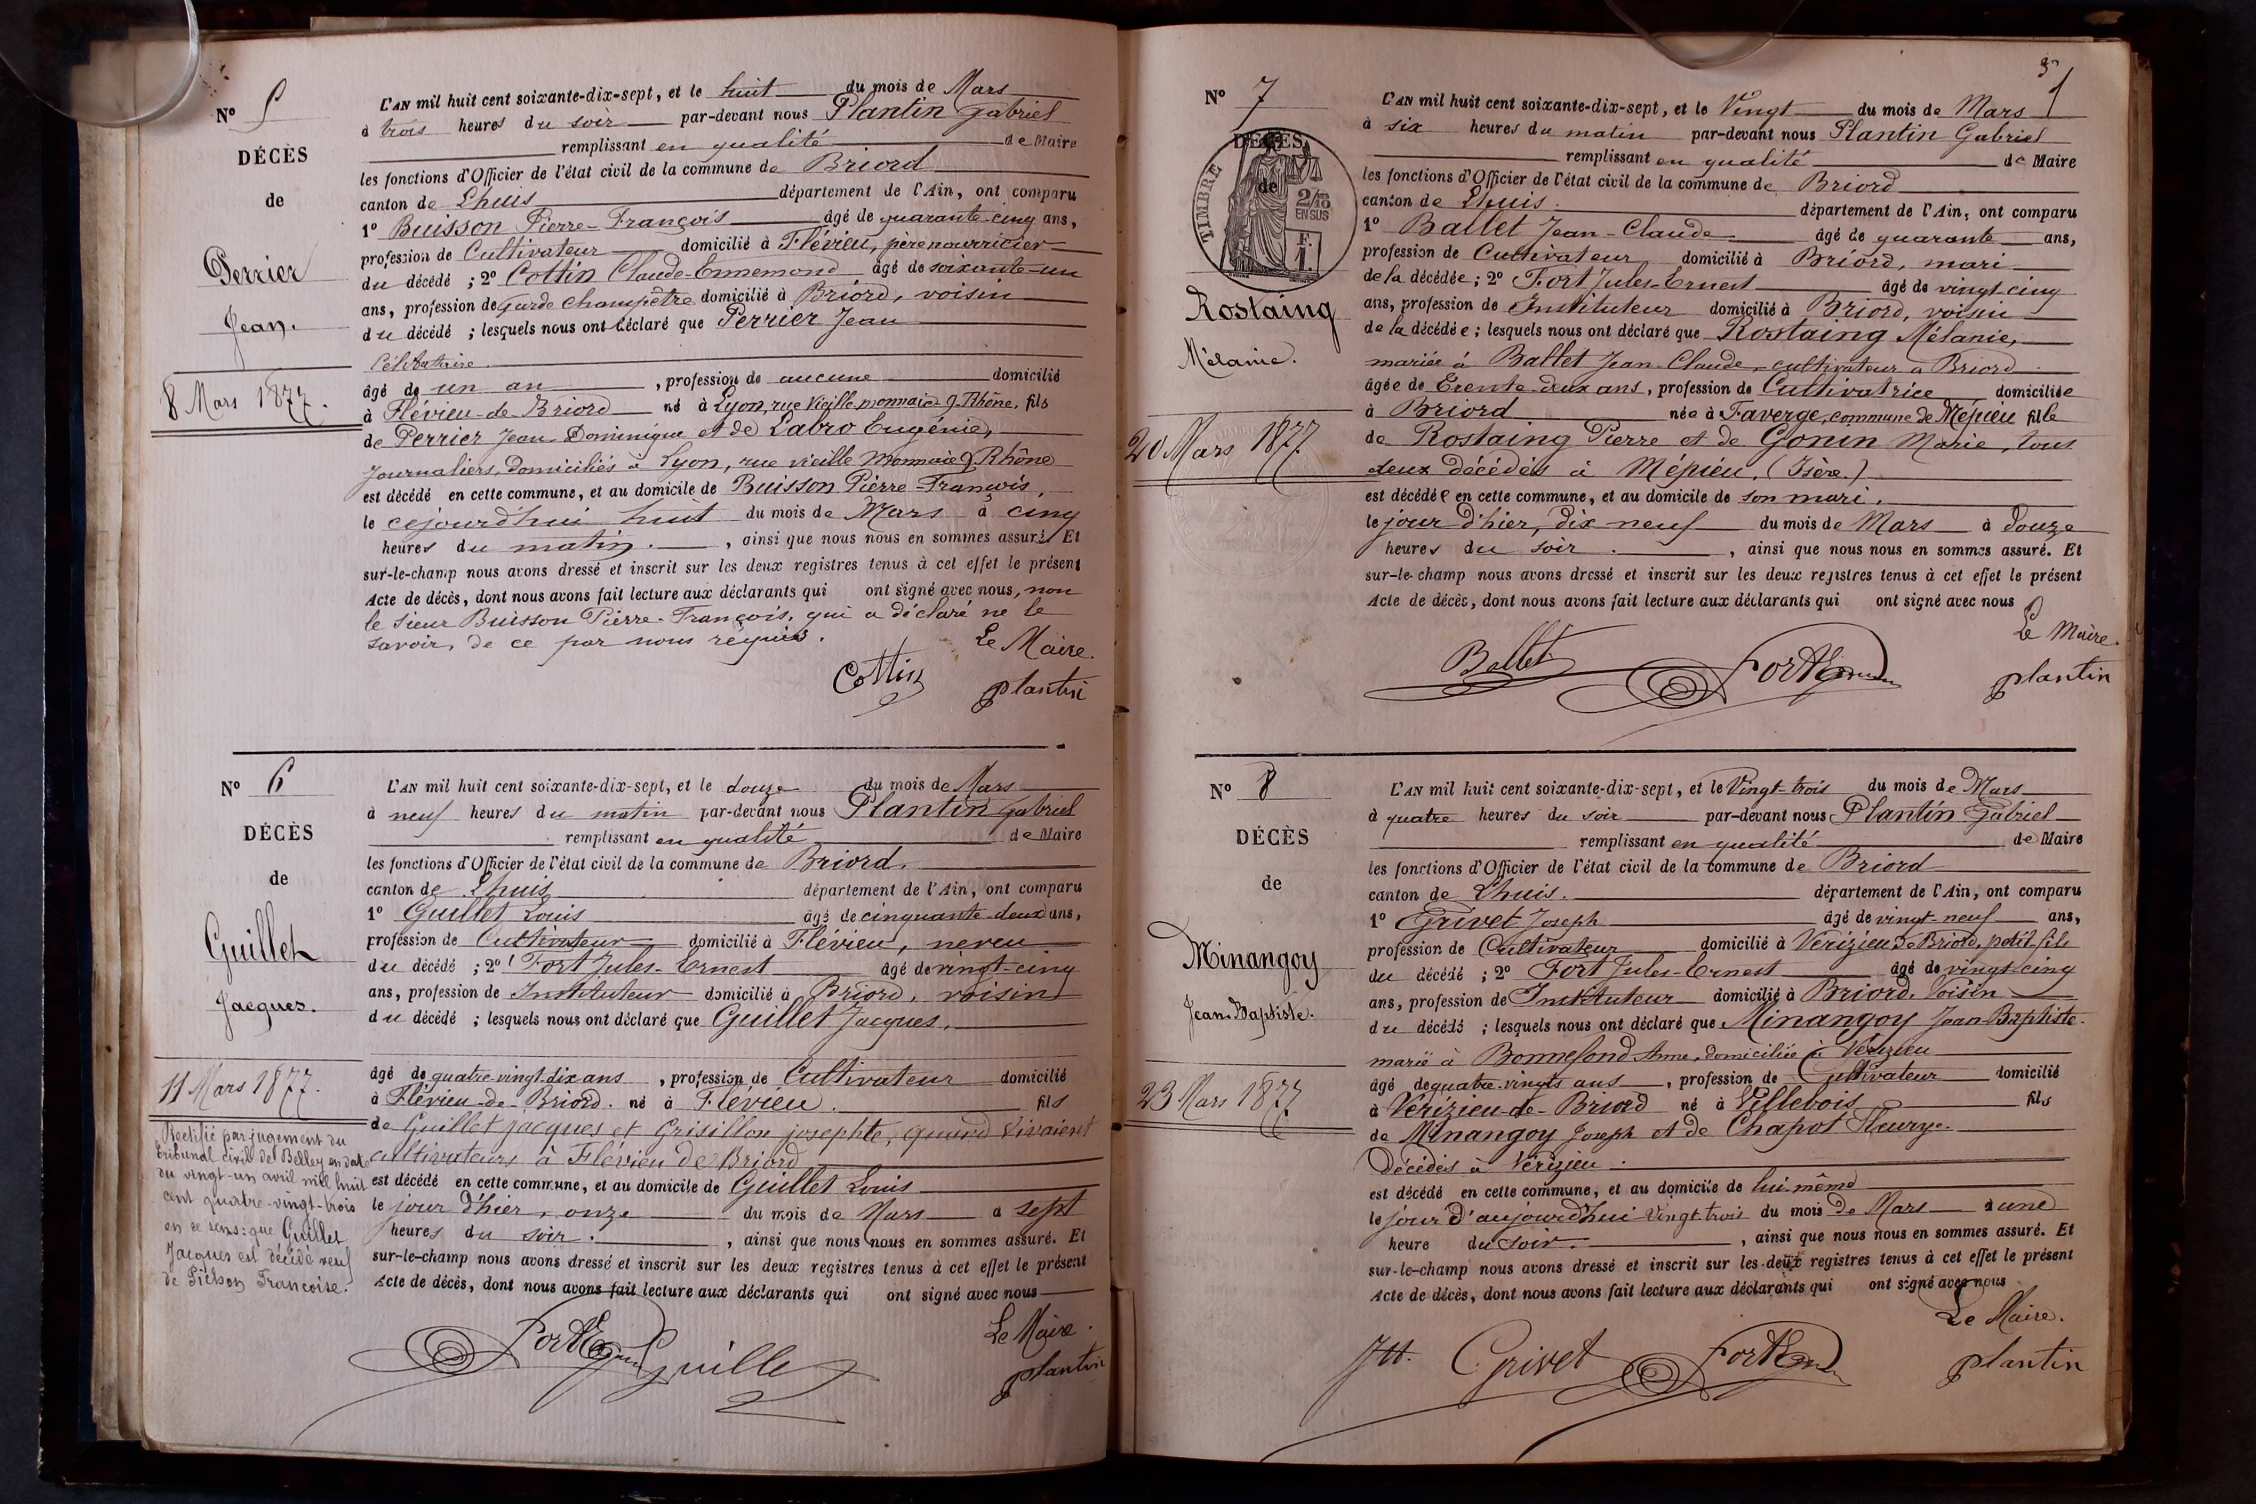 Nº 5
DÉCÈS
de
Perrier
Jean.
8 Mars 1877.
L'AN mil huit cent soixante-dix-sept, et le huit du mois de Mars
à trois heures du soir par-devant nous Plantin Gabriel
remplissant en qualité de Maire
les fonctions d'Officier de l'état civil de la commune de Briord
canton de Lhuis département de l'Ain, ont comparu
1º Buisson Pierre-François âgé de quarante-cinq ans,
profession de Cultivateur domicilié à Flévieu, père nourricier
du décédé ; 2º Cottin Claude-Ennemond âgé de soixante-un
ans, profession de garde champêtre domicilié à Briord, voisin
du décédé ; lesquels nous ont déclaré que Perrier Jean
Célibataire.
âgé de un an , profession de aucune domicilié
à Flévieu-de-Briord né à Lyon, rue Vieille monnaie 9. Rhône. fils
de Perrier Jean Dominique et de Labro Eugénie,
Journaliers, domiciliés à Lyon, rue vieille Monnaie 9. Rhône
est décédé en cette commune, et au domicile de Buisson Pierre-François,
le cejourd'hui huit du mois de Mars à cinq
heures du matin. , ainsi que nous nous en sommes assuré. Et
sur-le-champ nous avons dressé et inscrit sur les deux registres tenus à cet effet le présent
Acte de décès, dont nous avons fait lecture aux déclarants qui ont signé avec nous, non
le sieur Buisson Pierre-François, qui a déclaré ne le
savoir, de ce par nous requis.
Le Maire.
Cottin plantin
Nº 6
DÉCÈS
de
Guillet
Jacques.
11 Mars 1877.
Rectifié par jugement du
tribunal civil de Belley en date
du vingt-un avril mil huit
cent quatre-vingt-trois
en ce sens: que Guillet
Jacques est décédé veuf
de Françoise.
L'AN mil huit cent soixante-dix-sept, et le douze du mois de Mars
à neuf heures du matin par-devant nous Plantin Gabriel
remplissant en qualité de Maire
les fonctions d'Officier de l'état civil de la commune de Briord.
canton de Lhuis département de l'Ain, ont comparu
1º Guillet Louis âgé de cinquante-deux ans,
profession de Cultivateur domicilié à Flévieu, neveu
du décédé ; 2º Fort Jules-Ernest âgé de vingt-cinq
ans, profession de Instituteur domicilié à Briord, voisin
du décédé ; lesquels nous ont déclaré que Guillet Jacques,
âgé de quatre-vingt-dix ans , profession de Cultivateur domicilié
à Flévieu-de-Briord. né à Flévieu. fils
de Guillet jacques et Grisillon josephte, quand vivaient
cultivateurs à Flévieu de Briord
est décédé en cette commune, et au domicile de Guillet Louis
le jour d'hier, onze du mois de Mars à sept
heures du soir. , ainsi que nous nous en sommes assuré. Et
sur-le-champ nous avons dressé et inscrit sur les deux registres tenus à cet effet le présent
Acte de décès, dont nous avons fait lecture aux déclarants qui ont signé avec nous
Le Maire.
Fort Guillet plantin
5
Nº 7
DÉCÈS
de
TIMBRE
2/10
EN SUS
F.
1.
Rostaing
Mélanie.
20 Mars 1877.
L'AN mil huit cent soixante-dix-sept, et le Vingt du mois de Mars
à six heures du matin par-devant nous Plantin Gabriel
remplissant en qualité de Maire
les fonctions d'Officier de l'état civil de la commune de Briord
canton de Lhuis. département de l'Ain, ont comparu
1º Ballet Jean-Claude âgé de quarante ans,
profession de Cultivateur domicilié à Briord, mari
de la décédée ; 2º Fort Jules-Ernest âgé de vingt cinq
ans, profession de Instituteur domicilié à Briord, voisin
de la décédée ; lesquels nous ont déclaré que Rostaing Mélanie,
mariée à Ballet Jean-Claude, cultivateur à Briord
âgée de Trente-deux ans, profession de Cultivatrice domiciliée
à Briord née à Faverge, commune de Mépieu fille
de Rostaing Pierre et de Gonin Marie, tous
deux décédés à Mépieu. (Isère.)
est décédée en cette commune, et au domicile de son mari.
le jour d'hier, dix neuf du mois de Mars à douze
heures du soir. , ainsi que nous nous en sommes assuré. Et
sur-le-champ nous avons dressé et inscrit sur les deux registres tenus à cet effet le présent
Acte de décès, dont nous avons fait lecture aux déclarants qui ont signé avec nous
Le Maire.
Ballet Fort plantin
Nº 8
DÉCÈS
de
Minangoy
Jean-Baptiste.
23 Mars 1877
L'AN mil huit cent soixante-dix-sept, et le Vingt-trois du mois de Mars
à quatre heures du soir par-devant nous Plantin Gabriel
remplissant en qualité de Maire
les fonctions d'Officier de l'état civil de la commune de Briord
canton de Lhuis. département de l'Ain, ont comparu
1º Grivet Joseph âgé de vingt-neuf ans,
profession de Cultivateur domicilié à Vérizieu de Briord, petit-fils
du décédé ; 2º Fort Jules-Ernest âgé de vingt-cinq
ans, profession de Instituteur domicilié à Briord. Voisin
du décédé ; lesquels nous ont déclaré que Minangoy Jean-Baptiste.
marié à Bonnefond Anne, domiciliée à Vérizieu
âgé de quatre-vingts ans , profession de Cultivateur domicilié
à Vérizieu-de-Briord né à Villebois fils
de Minangoy Joseph et de Chapot Fleurye.
Décédés à Vérizieu.
est décédé en cette commune, et au domicile de lui-même
le jour d'aujourd'hui vingt-trois du mois de Mars à une
heure du soir. , ainsi que nous nous en sommes assuré. Et
sur-le-champ nous avons dressé et inscrit sur les deux registres tenus à cet effet le présent
Acte de décès, dont nous avons fait lecture aux déclarants qui ont signé avec nous
Le Maire.
Grivet Fort plantin